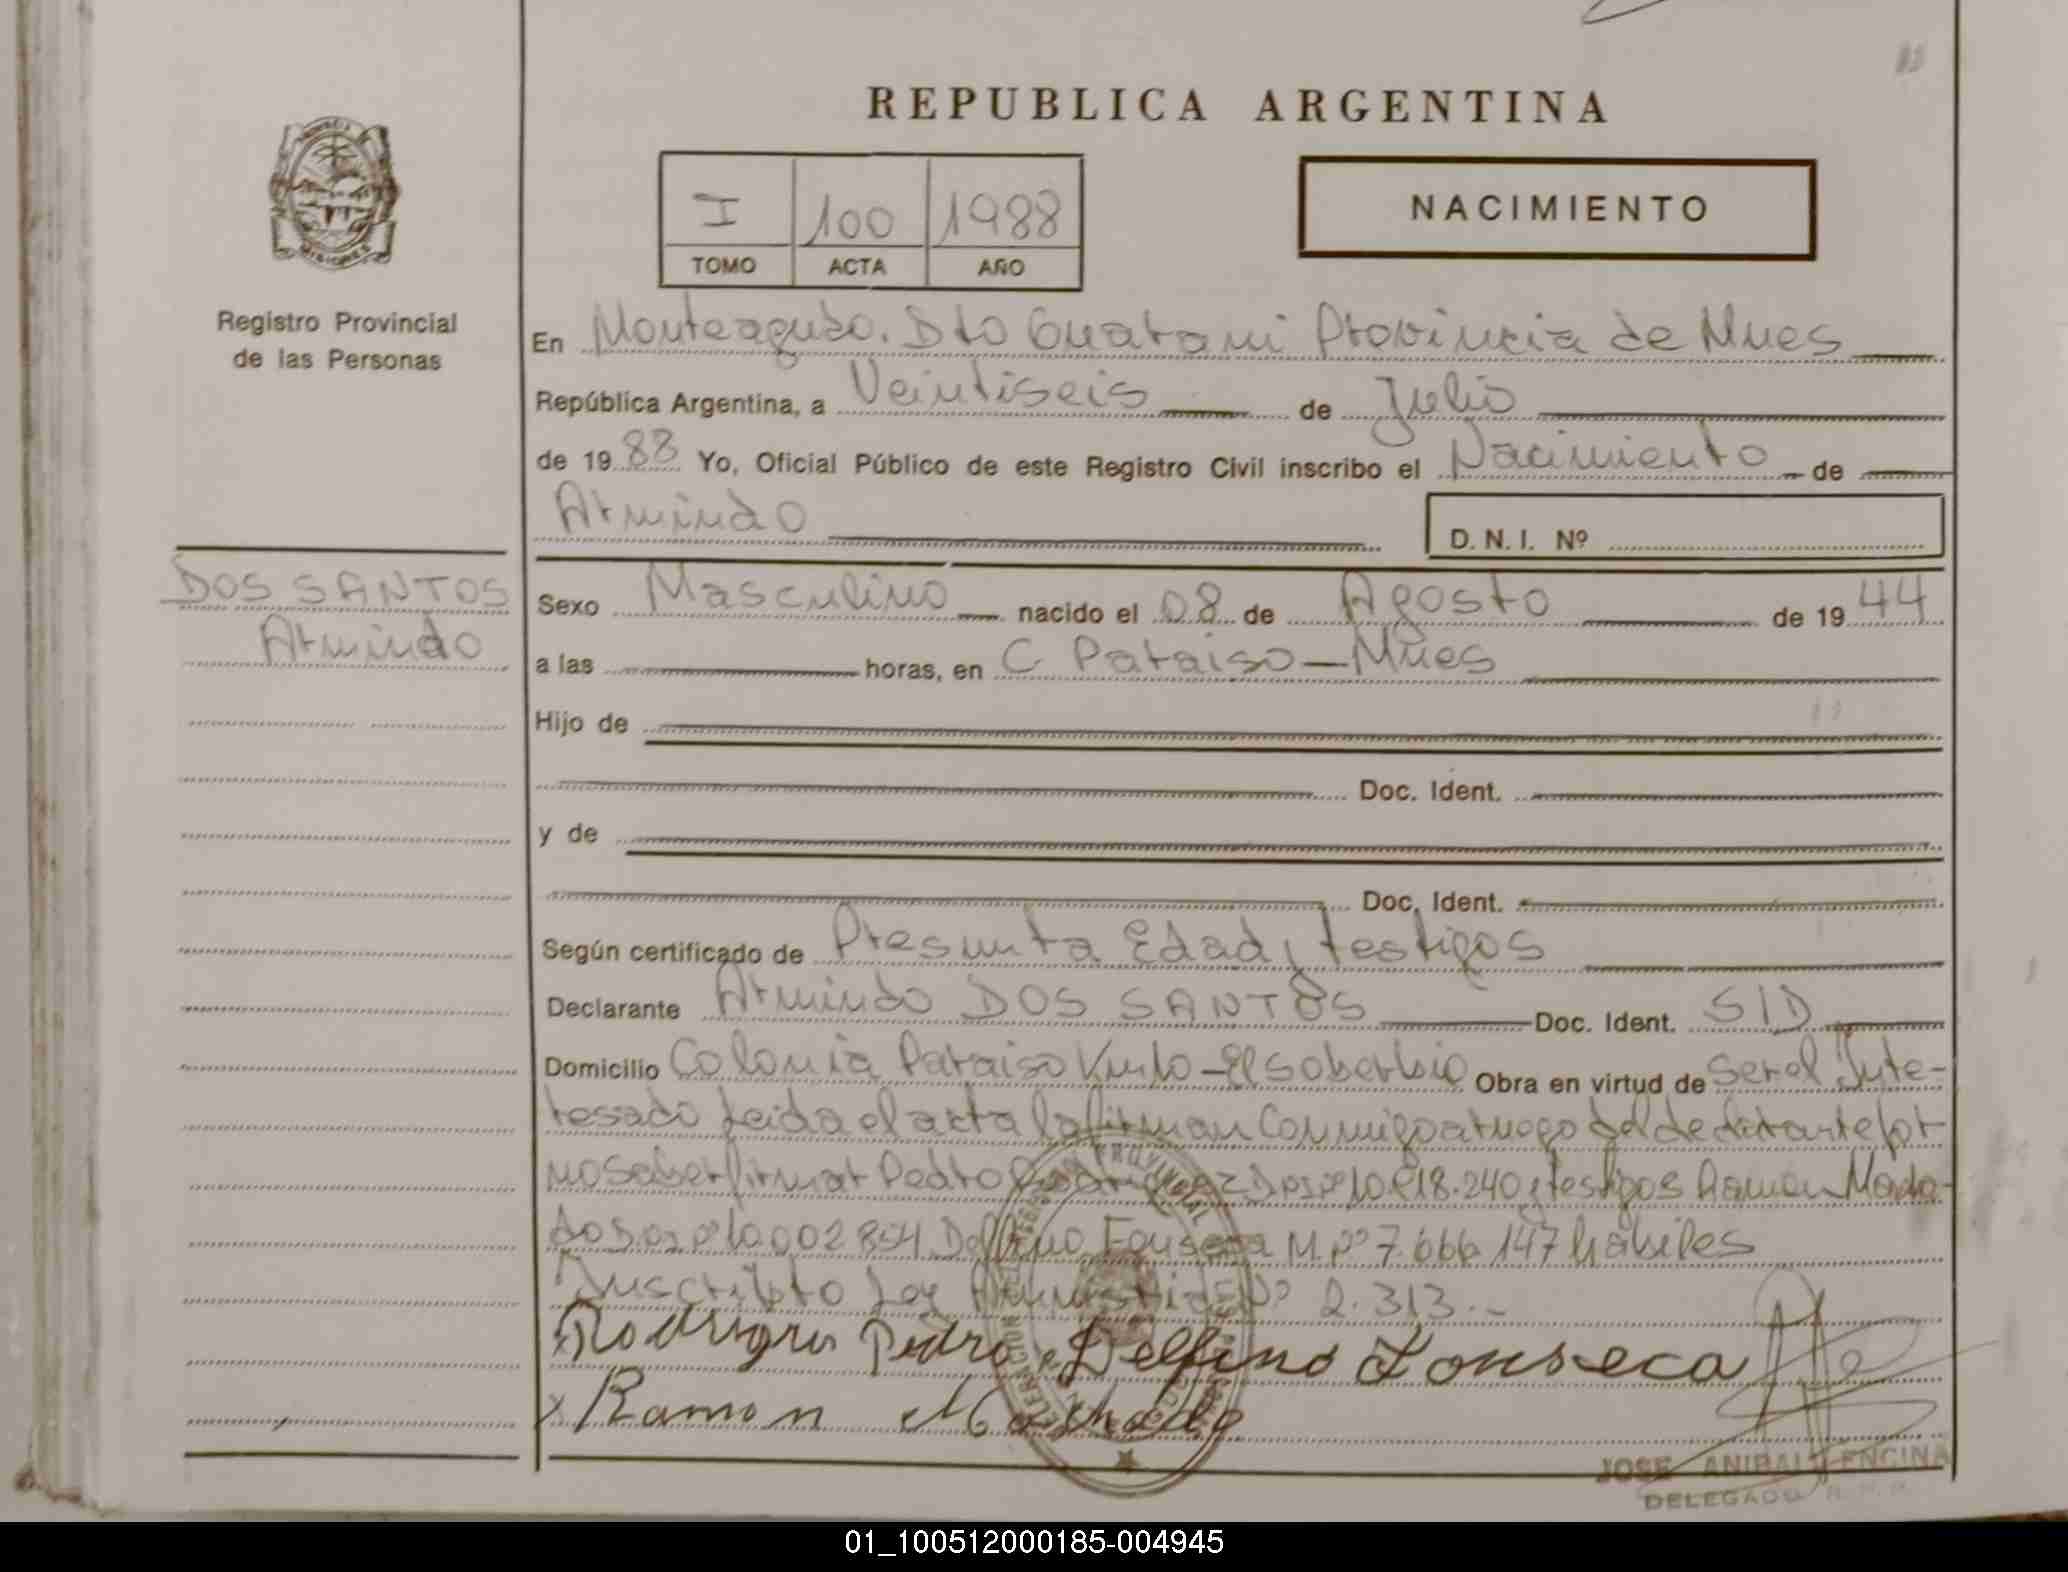 REPUBLICA ARGENTINA
I 100 1988
TOMO ACTA AÑO
NACIMIENTO
MISIONES
Registro Provincial
de las Personas
En Monteagudo. Dto Guarani Provincia de Mnes
República Argentina, a Veintiseis de Julio
de 1988 Yo, Oficial Público de este Registro Civil inscribo el Nacimiento de
Armindo
D. N. I. Nº
DOS SANTOS
Armindo
Sexo Masculino nacido el 08 de Agosto de 1944
a las horas, en C Paraiso - Mnes
Hijo de
Doc. Ident.
y de
Doc. Ident.
Según certificado de Presunta Edad, testigos
Declarante Armindo DOS SANTOS Doc. Ident. S/D
Domicilio Colonia Paraiso - El Soberbio Obra en virtud de Ser el Inte-
resado Leida el acta la firman Conmigo a ruego del declarante por
no Saber firmar Pedro Rodriguez y testigos Ramon Macha-
do Delfino Fonseca M. Nº 7.666.147 habiles
Inscripto Ley Nº 2.313.-
Rodrigues Pedro Delfino Fonseca
x Ramon Machado
JOSE ANIBAL ENCINA
DELEGADO
01_100512000185-004945